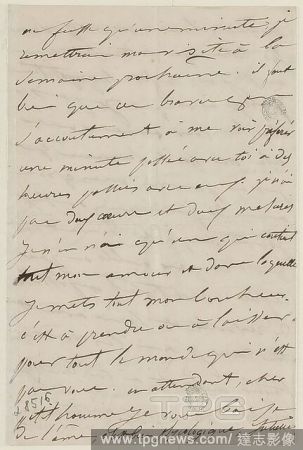 ne fût qu'une minute, je
remettrai ma visite à la
semaine prochaine. il faut
bien que ces braves gens
s'accoutument à me voir préférer
une minute passée avec toi à des
heures passées avec eux. je n'ai
pas deux cœurs et deux mesures
Je n'en ai qu'un qui contient
tout mon amour et dans laquelle
Je mets tout mon bonheur.
c'est à prendre ou à laisser
pour tout le monde qui n'est
pas vous. en attendant, cher
petit homme, je vous baise
de l'âme,
Juliette
8516
TPG
www.tpgnews.com / 達志影像